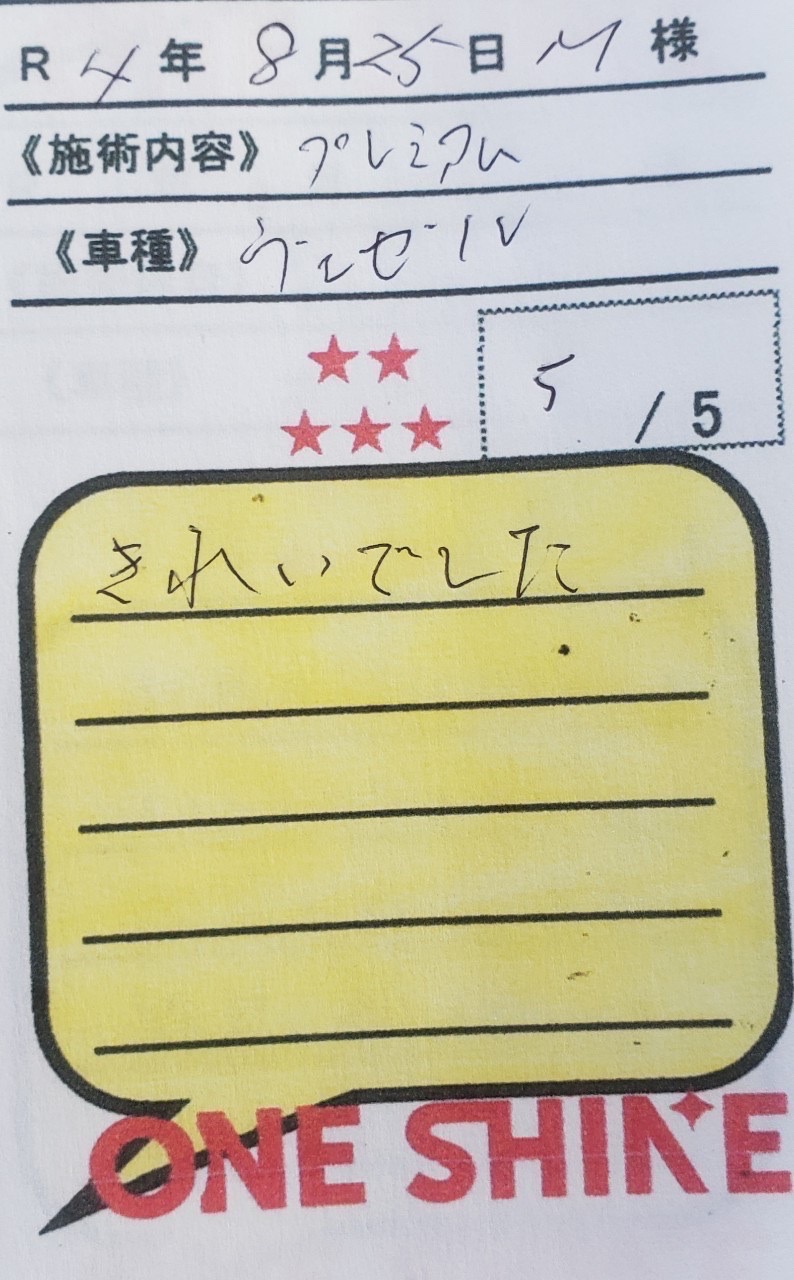 R 4年 8月25日 M 様
《施術内容》 プレミアム
《車種》 ヴェゼル
5 / 5
きれいでした
ONE SHINE